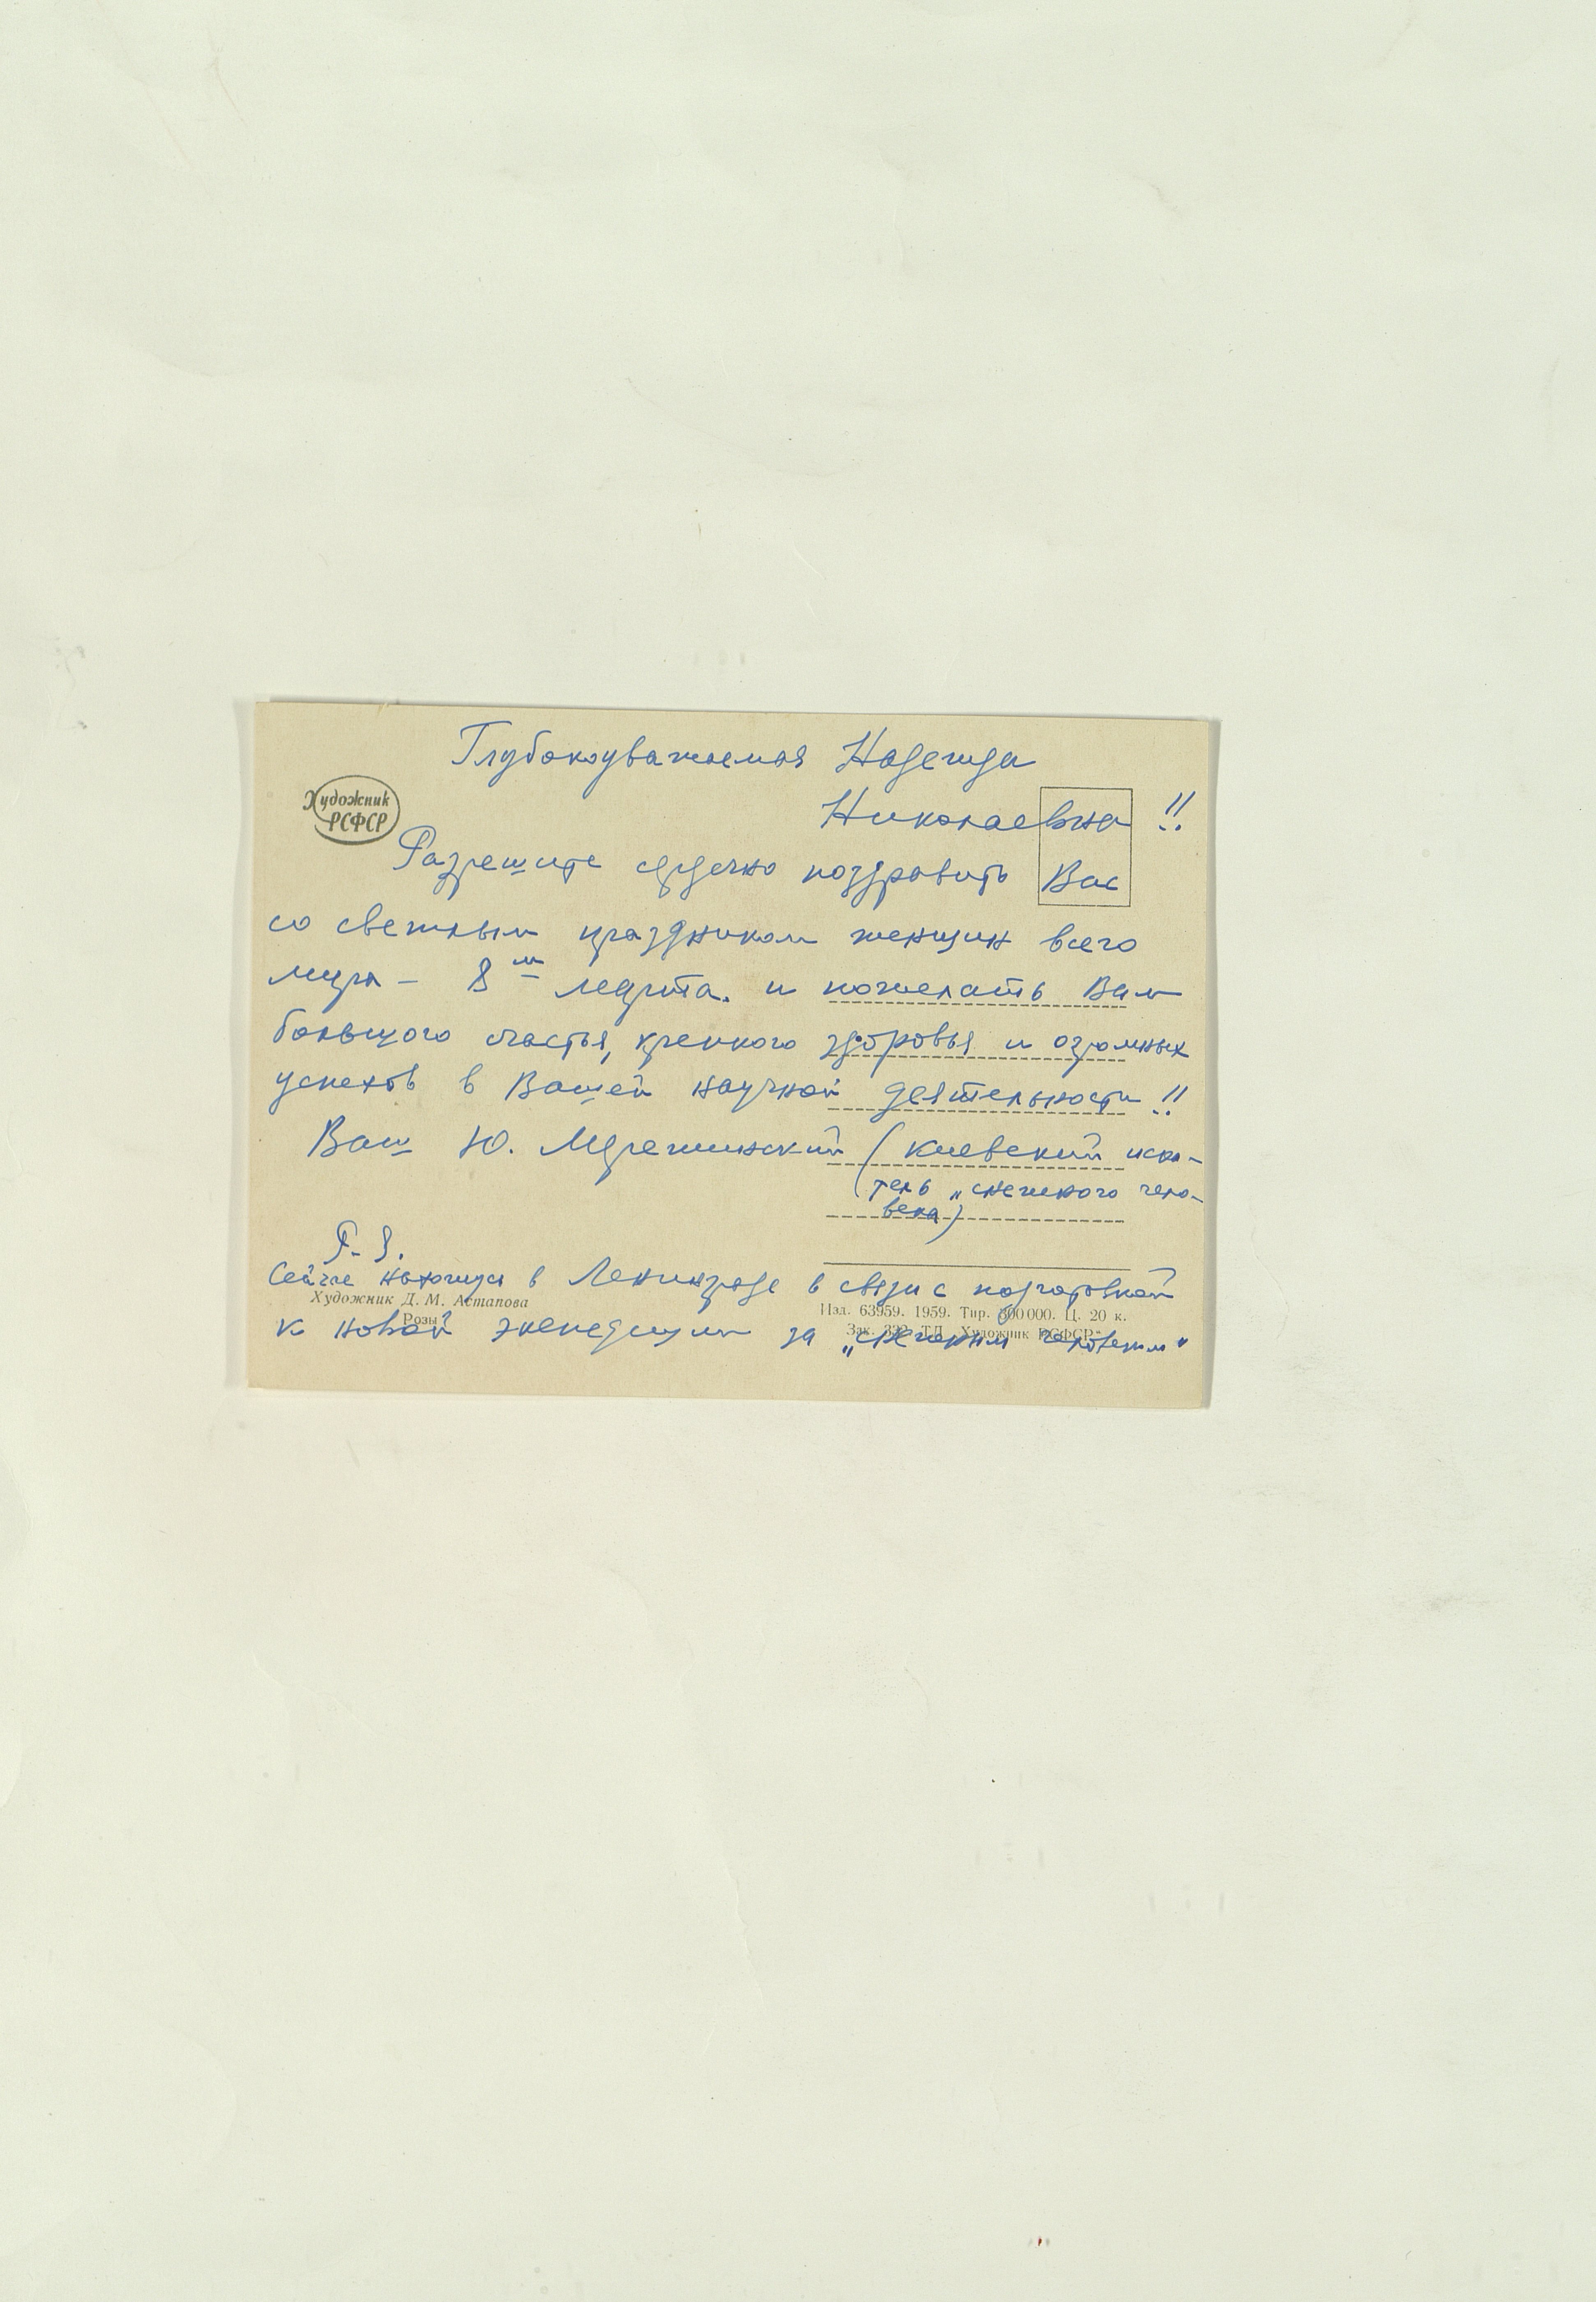 Глубокоуважаемая Надежда
Николаевна !!
Художник
РСФСР
Разрешите сердечно поздравить Вас
со светлым праздником женщин всего
мира – 8м марта. и пожелать Вам
большого счастья, крепкого здоровья и огромных
успехов в Вашей научной деятельности !!
Ваш Ю. Мережинский (Киевский иска-
тель „снежного чело-
века)
P. S.
Сейчас нахожусь в Ленинграде в связи с подготовкой
Художник Д. М. Астапова
Розы
Изд. 63959. 1959. Тир. 300000. Ц. 20 к.
к новой экспедиции за „снежным человеком"
Зак. 332. ТЛ „Художник РСФСР"